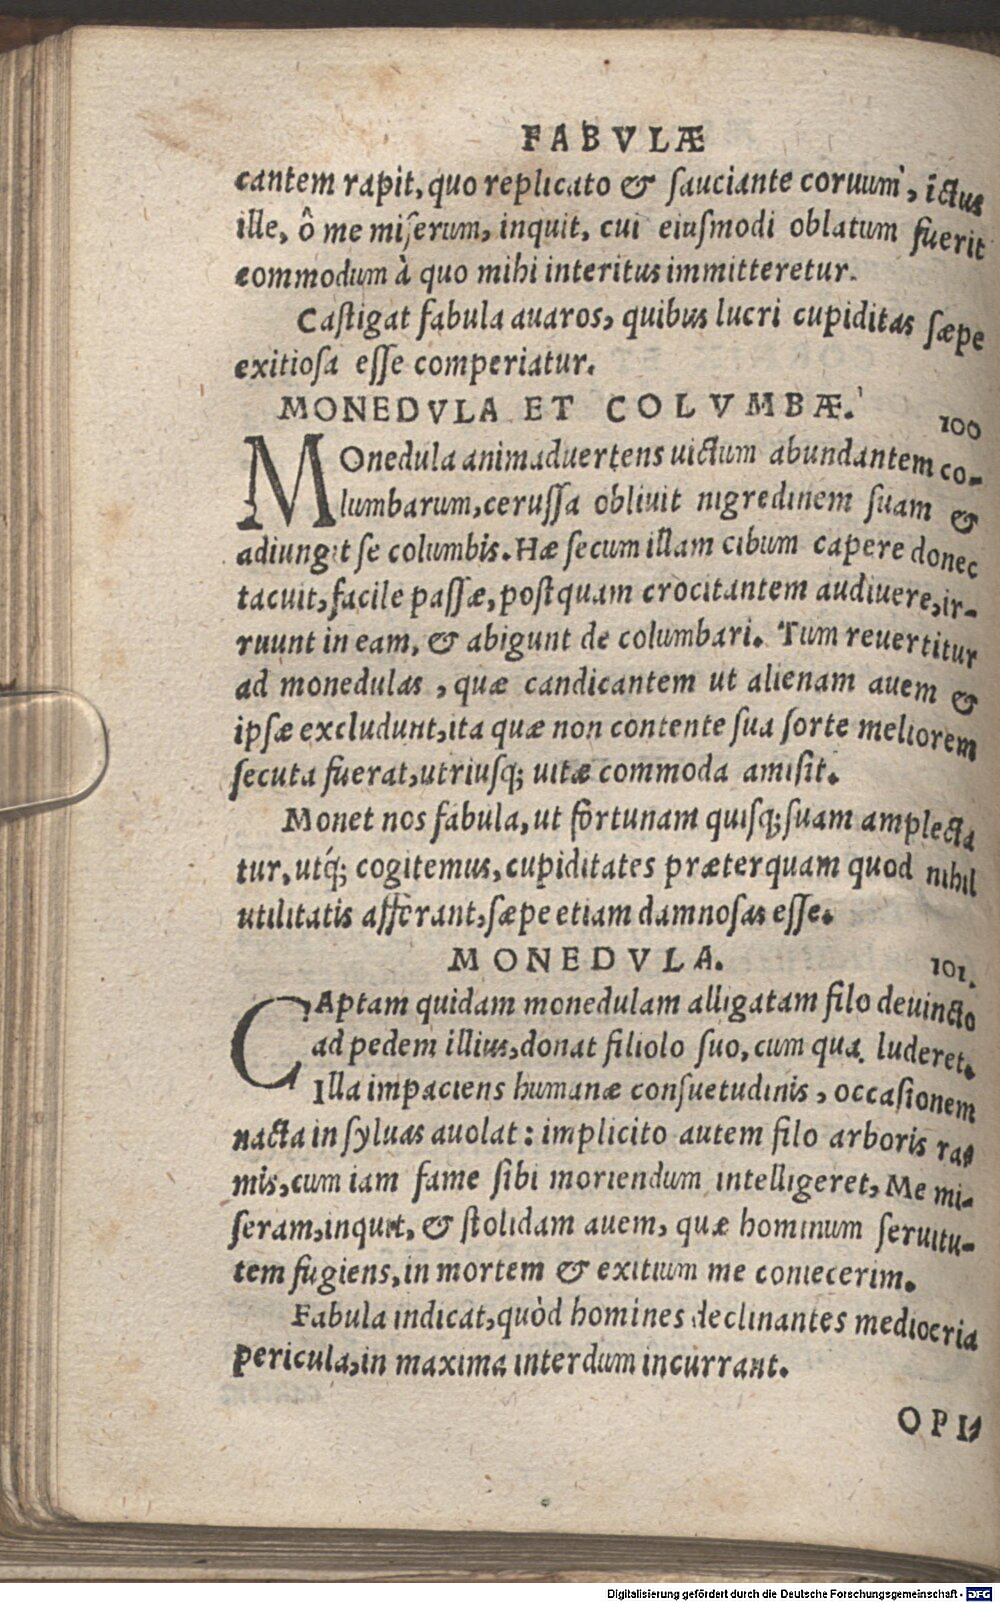 FABVLÆ
cantem rapit, quo replicato & ſauciante coruum, ictus
ille, ô me miſerum, inquit, cui eiuſmodi oblatum fuerit
commodum à quo mihi interitus immitteretur.
Caſtigat fabula auaros, quibus lucri cupiditas ſæpe
exitioſa eſſe comperiatur.
MONEDVLA ET COLVMBÆ. 100
MOnedula animaduertens uictum abundantem co-
lumbarum, ceruſſa obliuit nigredinem ſuam &
adiungit ſe columbis. Hæ ſecum illam cibum capere donec
tacuit, facile paſſæ, poſtquam crocitantem audiuere, ir-
ruunt in eam, & abigunt de columbari. Tum reuertitur
ad monedulas, quæ candicantem ut alienam auem &
ipſæ excludunt, ita quæ non contente ſua ſorte meliorem
ſecuta fuerat, utriuſq; uitæ commoda amiſit.
Monet nos fabula, ut fortunam quiſq; ſuam amplecta
tur, utq́; cogitemus, cupiditates præterquam quod nihil
utilitatis afferant, ſæpe etiam damnoſas eſſe.
MONEDVLA. 101.
CAptam quidam monedulam alligatam filo deuincto
ad pedem illius, donat filiolo ſuo, cum qua luderet.
Illa impaciens humanæ conſuetudinis, occaſionem
nacta in ſyluas auolat: implicito autem filo arboris ra-
mis, cum iam fame ſibi moriendum intelligeret, Me mi-
ſeram, inquit, & ſtolidam auem, quæ hominum ſeruitu-
tem fugiens, in mortem & exitium me coniecerim.
Fabula indicat, quòd homines declinantes mediocria
pericula, in maxima interdum incurrant.
OPI-
Digitalisierung gefördert durch die Deutsche Forschungsgemeinschaft - DFG